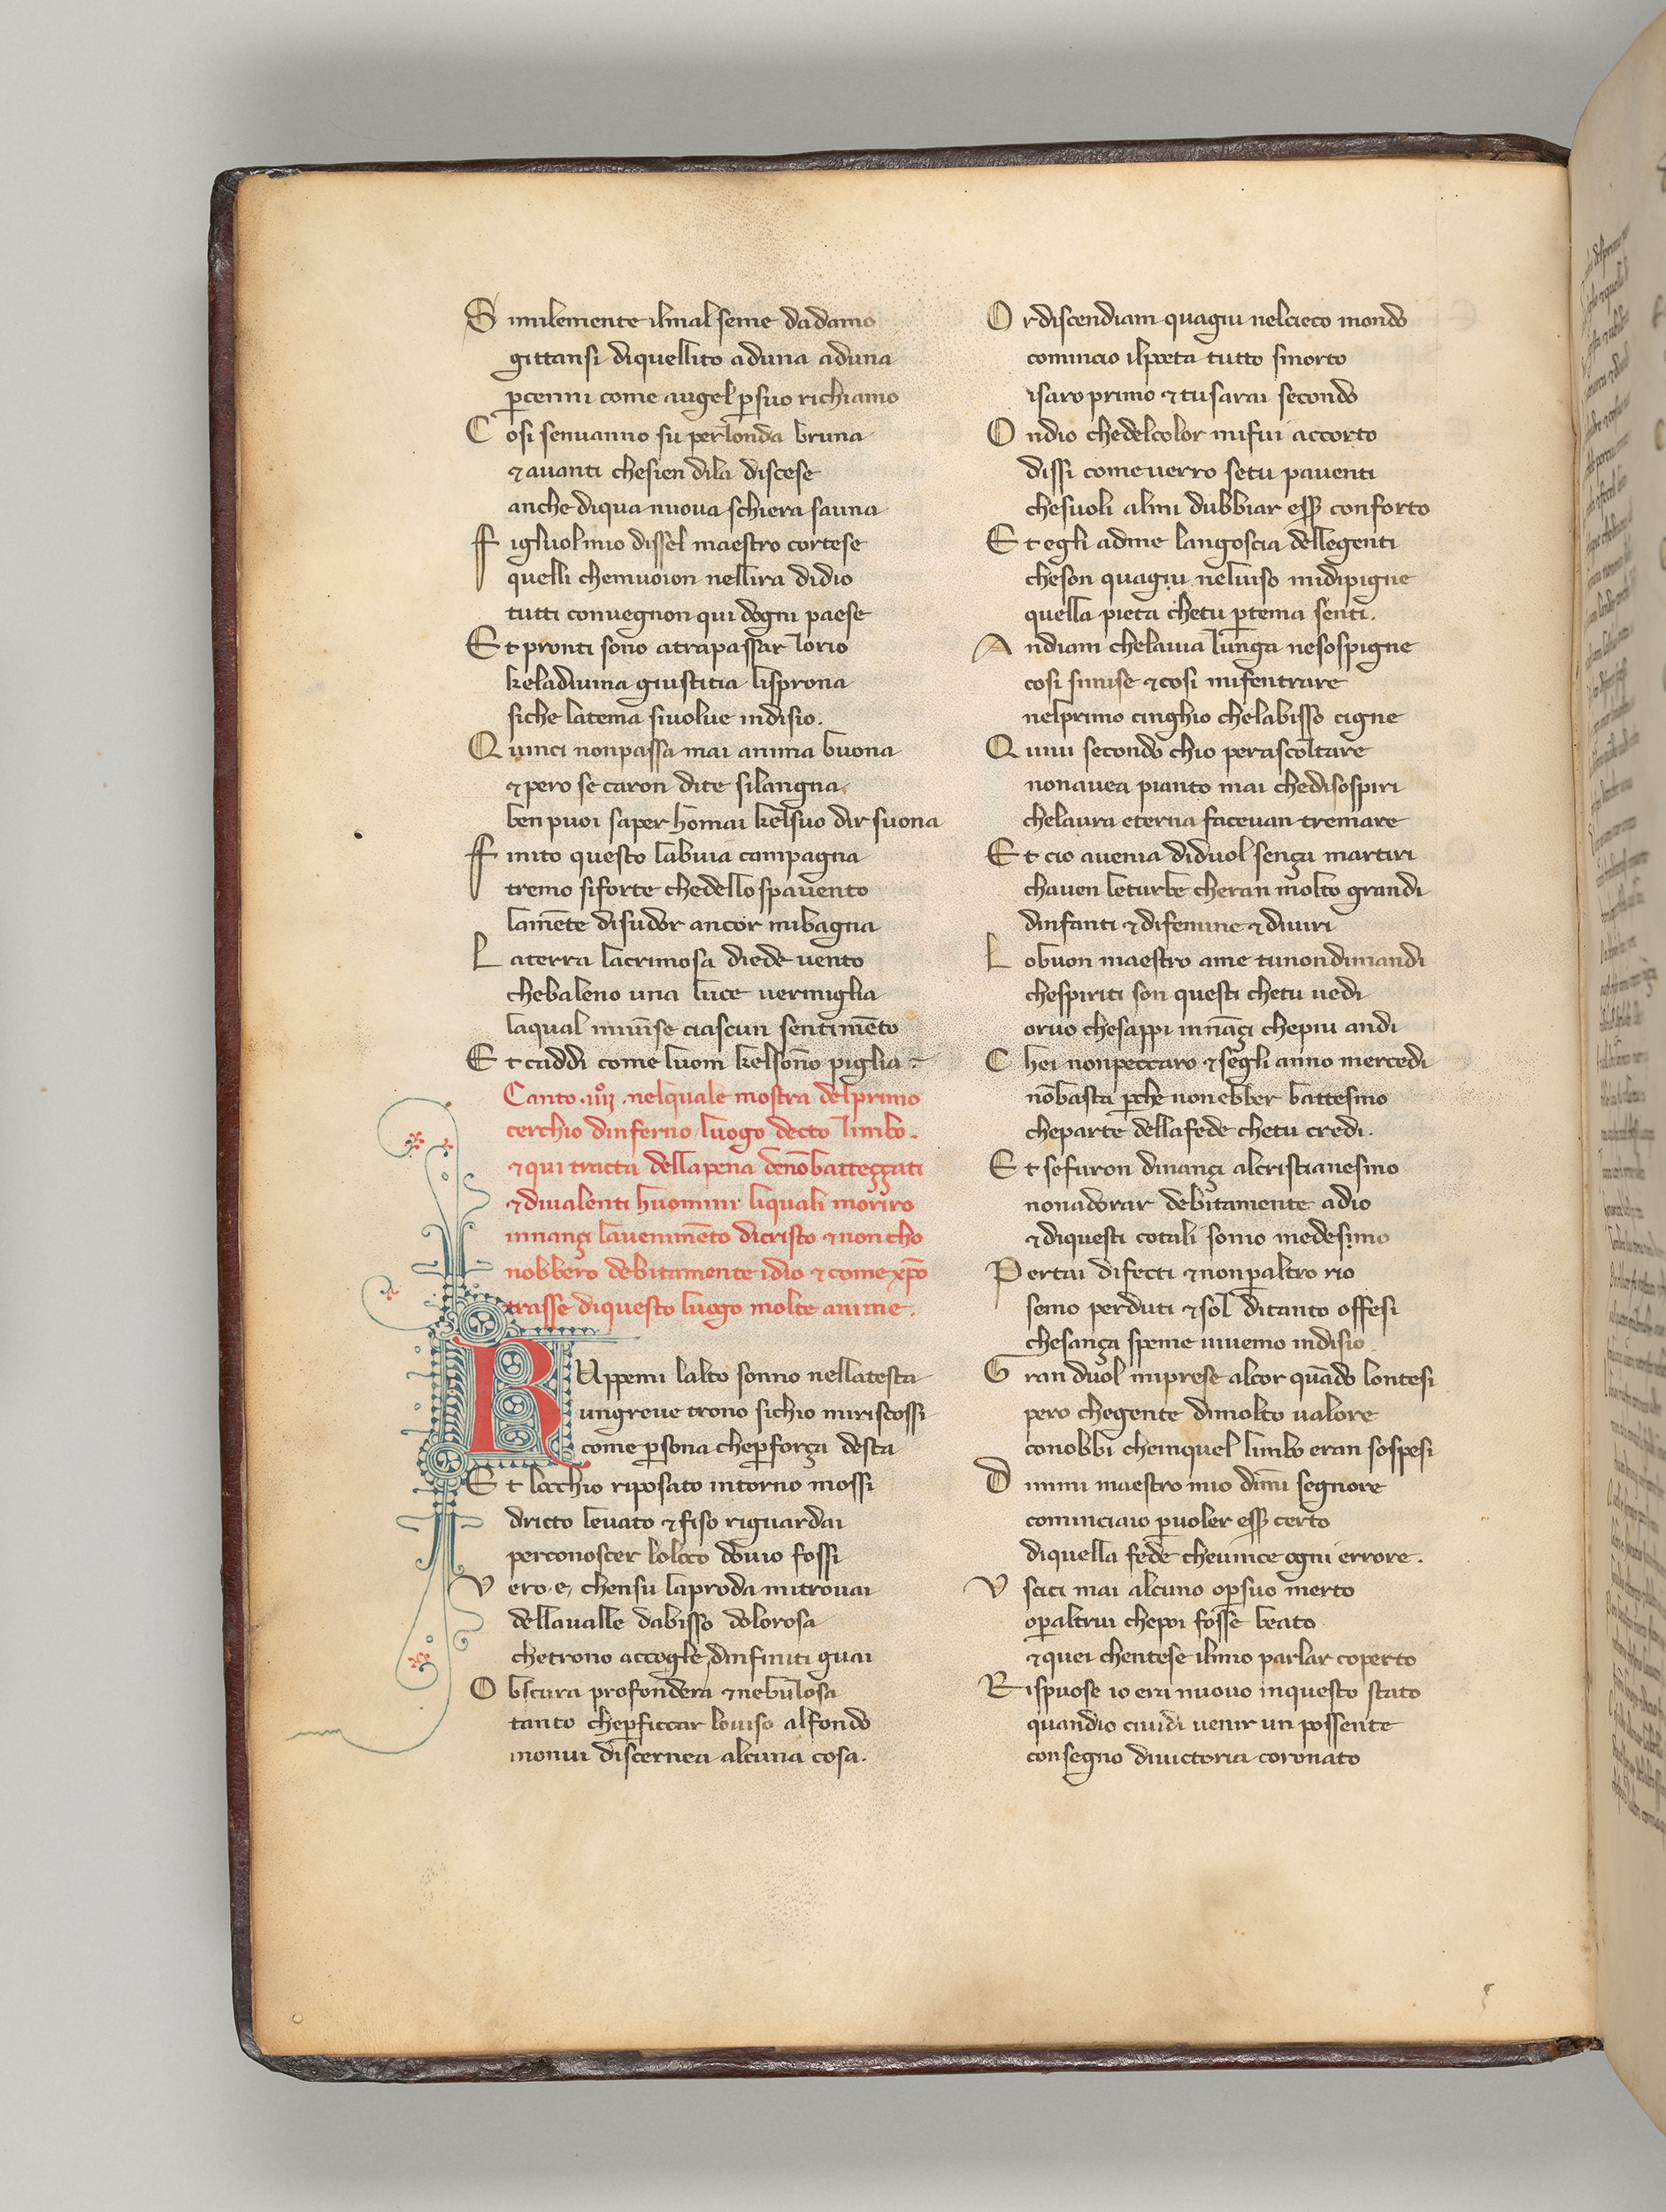 S imilemente ilmal seme dadamo
gittansi diquellito aduna aduna
p̲cenni come augel p̲suo richiamo
C osi senuanno su per londa bruna
⁊ auanti chesien dila discese
anche diqua nuoua schiera sauna
F igluol mio dissel maestro cortese
quelli chemuoion nellira didio
tutti conuegnon qui dogni paese
E t pronti sono atrapassar lorio
keladiuina giustitia lisprona
siche latema siuolue indisio.
Q uinci nonpassa mai anima buona
⁊ pero se caron dite silangna
ben puoi saper homai kelsuo dir suona
F inito questo labuia campagna
tremo siforte chedello spauento
lam̅ete disudor ancor mibagna
L aterra lacrimosa diede uento
chebaleno una luce uermiglia
laqual miuinse ciascun sentim̅eto
E t caddi come luom kelson̅o piglia
Canto .iiij. nelquale mostra delprimo
cerchio dinferno luogo decto limbo.
⁊ qui tracta dellapena deno̅ batteççati
⁊ diualenti huomini liquali moriro
innançi lauenim̅eto dicristo ⁊ non cho
nobbero debitamente idio ⁊ come xp̅o
trasse diquesto luogo molte anime.
R Uppemi lalto sonno nellatesta
ungreue trono sichio miriscossi
come p̲sona chep̲força desta
E t locchio riposato intorno mossi
dricto leuato ⁊ fiso riguardai
perconoscer loloco douio fossi
V ero .e. chensu laproda mitrouai
dellaualle dabisso dolorosa
chetrono accogle dinfiniti guai
O bscura profondera ⁊ nebulosa
tanto chep̲ficcar louiso alfondo
inonui discernea alcuna cosa.
O r discendiam quagiu nelcieco mondo
comincio ilpoeta tutto smorto
isaro primo ⁊ tusarai secondo
O ndio chedelcolor mifui accorto
dissi comeuerro setu pauenti
chesuoli almi dubbiar ess̲ conforto
E t egli adme langoscia dellegenti
cheson quagiu neluiso midipigne
quella pieta chetu p̲tema senti.
A ndiam chelauia lunga nesospigne
cosi simise ⁊ cosi mifentrare
nelprimo cinghio chelabisso cigne
Q uiui secondo chio perascoltare
nonauea pianto mai chedisospiri
chelaura eterna faceuan tremare
E t cio auenia diduol sença martiri
chauen leturbe cheran molto grandi
dinfanti ⁊ difemine ⁊ diuiri
L obuon maestro ame tunondimandi
chespiriti son questi chetu uedi
oruo chesappi inna̅çi chepiu andi
C hei nonpeccaro ⁊ segli anno mercedi
no̅ basta p̲che nonebber battesmo
cheparte dellafede chetu credi.
E t sefuron dinançi alcristianesmo
nonadorar debitamente adio
⁊ diquesti cotali sonio medesimo
P ertai difecti ⁊ nonp̲altro rio
semo perduti ⁊ sol ditanto offesi
chesança speme uiuemo indisio.
G ran duol miprese alcor qua̅do lontesi
pero chegente dimolto ualore
conobbi cheinquel limbo eran sospesi
D immi maestro mio dim̅i segnore
cominciaio p̲uoler ess̲ certo
diquella fede cheuince ogni errore.
V scici mai alcuno op̲suo merto
op̲altrui chepoi fosse beato
⁊ quei chentese ilmio parlar coperto
R ispuose io eri nuouo inquesto stato
quandio ciuidi uenir un possente
consegno diuictoria coronato